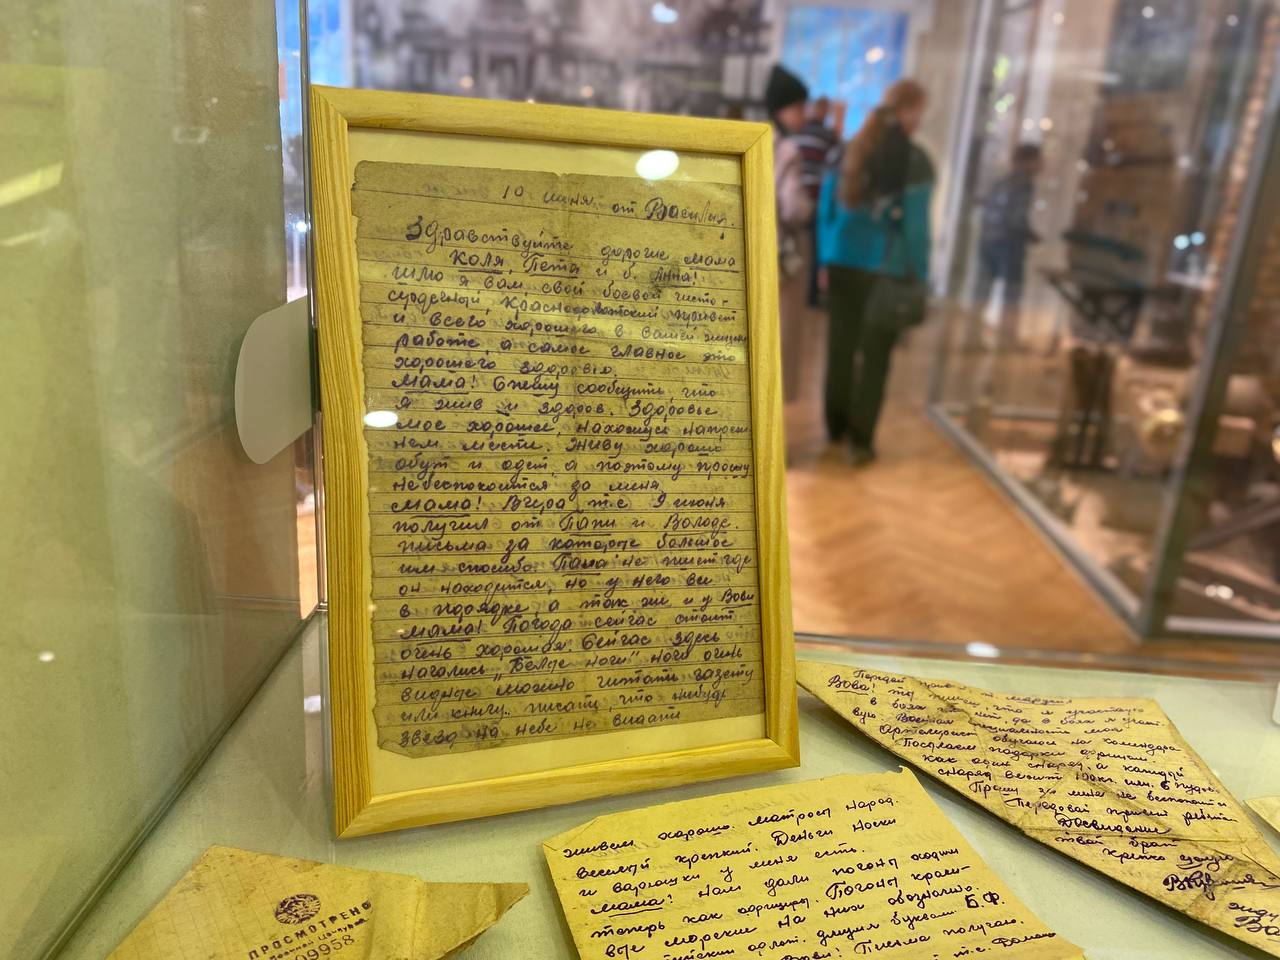 10 июня. от Василия.
Здравствуйте дорогие мама
Коля, Петя и б. Анна!
шлю я вам свой боевой чисто-
сердечный, Краснофлотский привет
и всего хорошего в вашей жизни
работе, а самое главное это
хорошего здоровью.
Мама! Спешу сообщить, что
я жив и здоров. Здоровье
мое хорошее, нахожусь на прежн
нем месте. Живу хорошо
обут и одет, а поэтому прошу
небеспокоится за меня.
Мама! Вчера т.е 9 июня
получил от Папи и Володе.
письма за которые большое
им спасибо. Папа не пишет где
он находится, но у него все
в порядке, а так же и у Вови
мама! Погода сейчас стоит
очень хорошая. Сейчас здесь
начались "Белые ночи" ночи очень
видные можно читать газету
или книгу. писать, что нибудь
звезд на небе не видати
живем хорошо. матросы народ.
веселый крепкий. Деньги носки
и варюшки у меня есть.
мама! Нам дали погоны ходим
теперь как офицеры. Погоны краси-
вые морские на них обозначено.
флот. двумя буквами Б.Ф.
Вови! Письма получаю.
т.е.
Передай привет
Вова! ты пишеш, что я участвую
в боях
вую Военная специальность моя
Артилерист обучаюсь на командора
Посылаем подарки фрицам.
как один снаряд, а каждый
снаряд весит 100кг. или 6 пудов.
Прошу за меня не беспокоится
Передавай привет ребят
Досвидание
твой брат
крепко целую
ПРОСМОТРЕНО
Военной Цензурой
09958